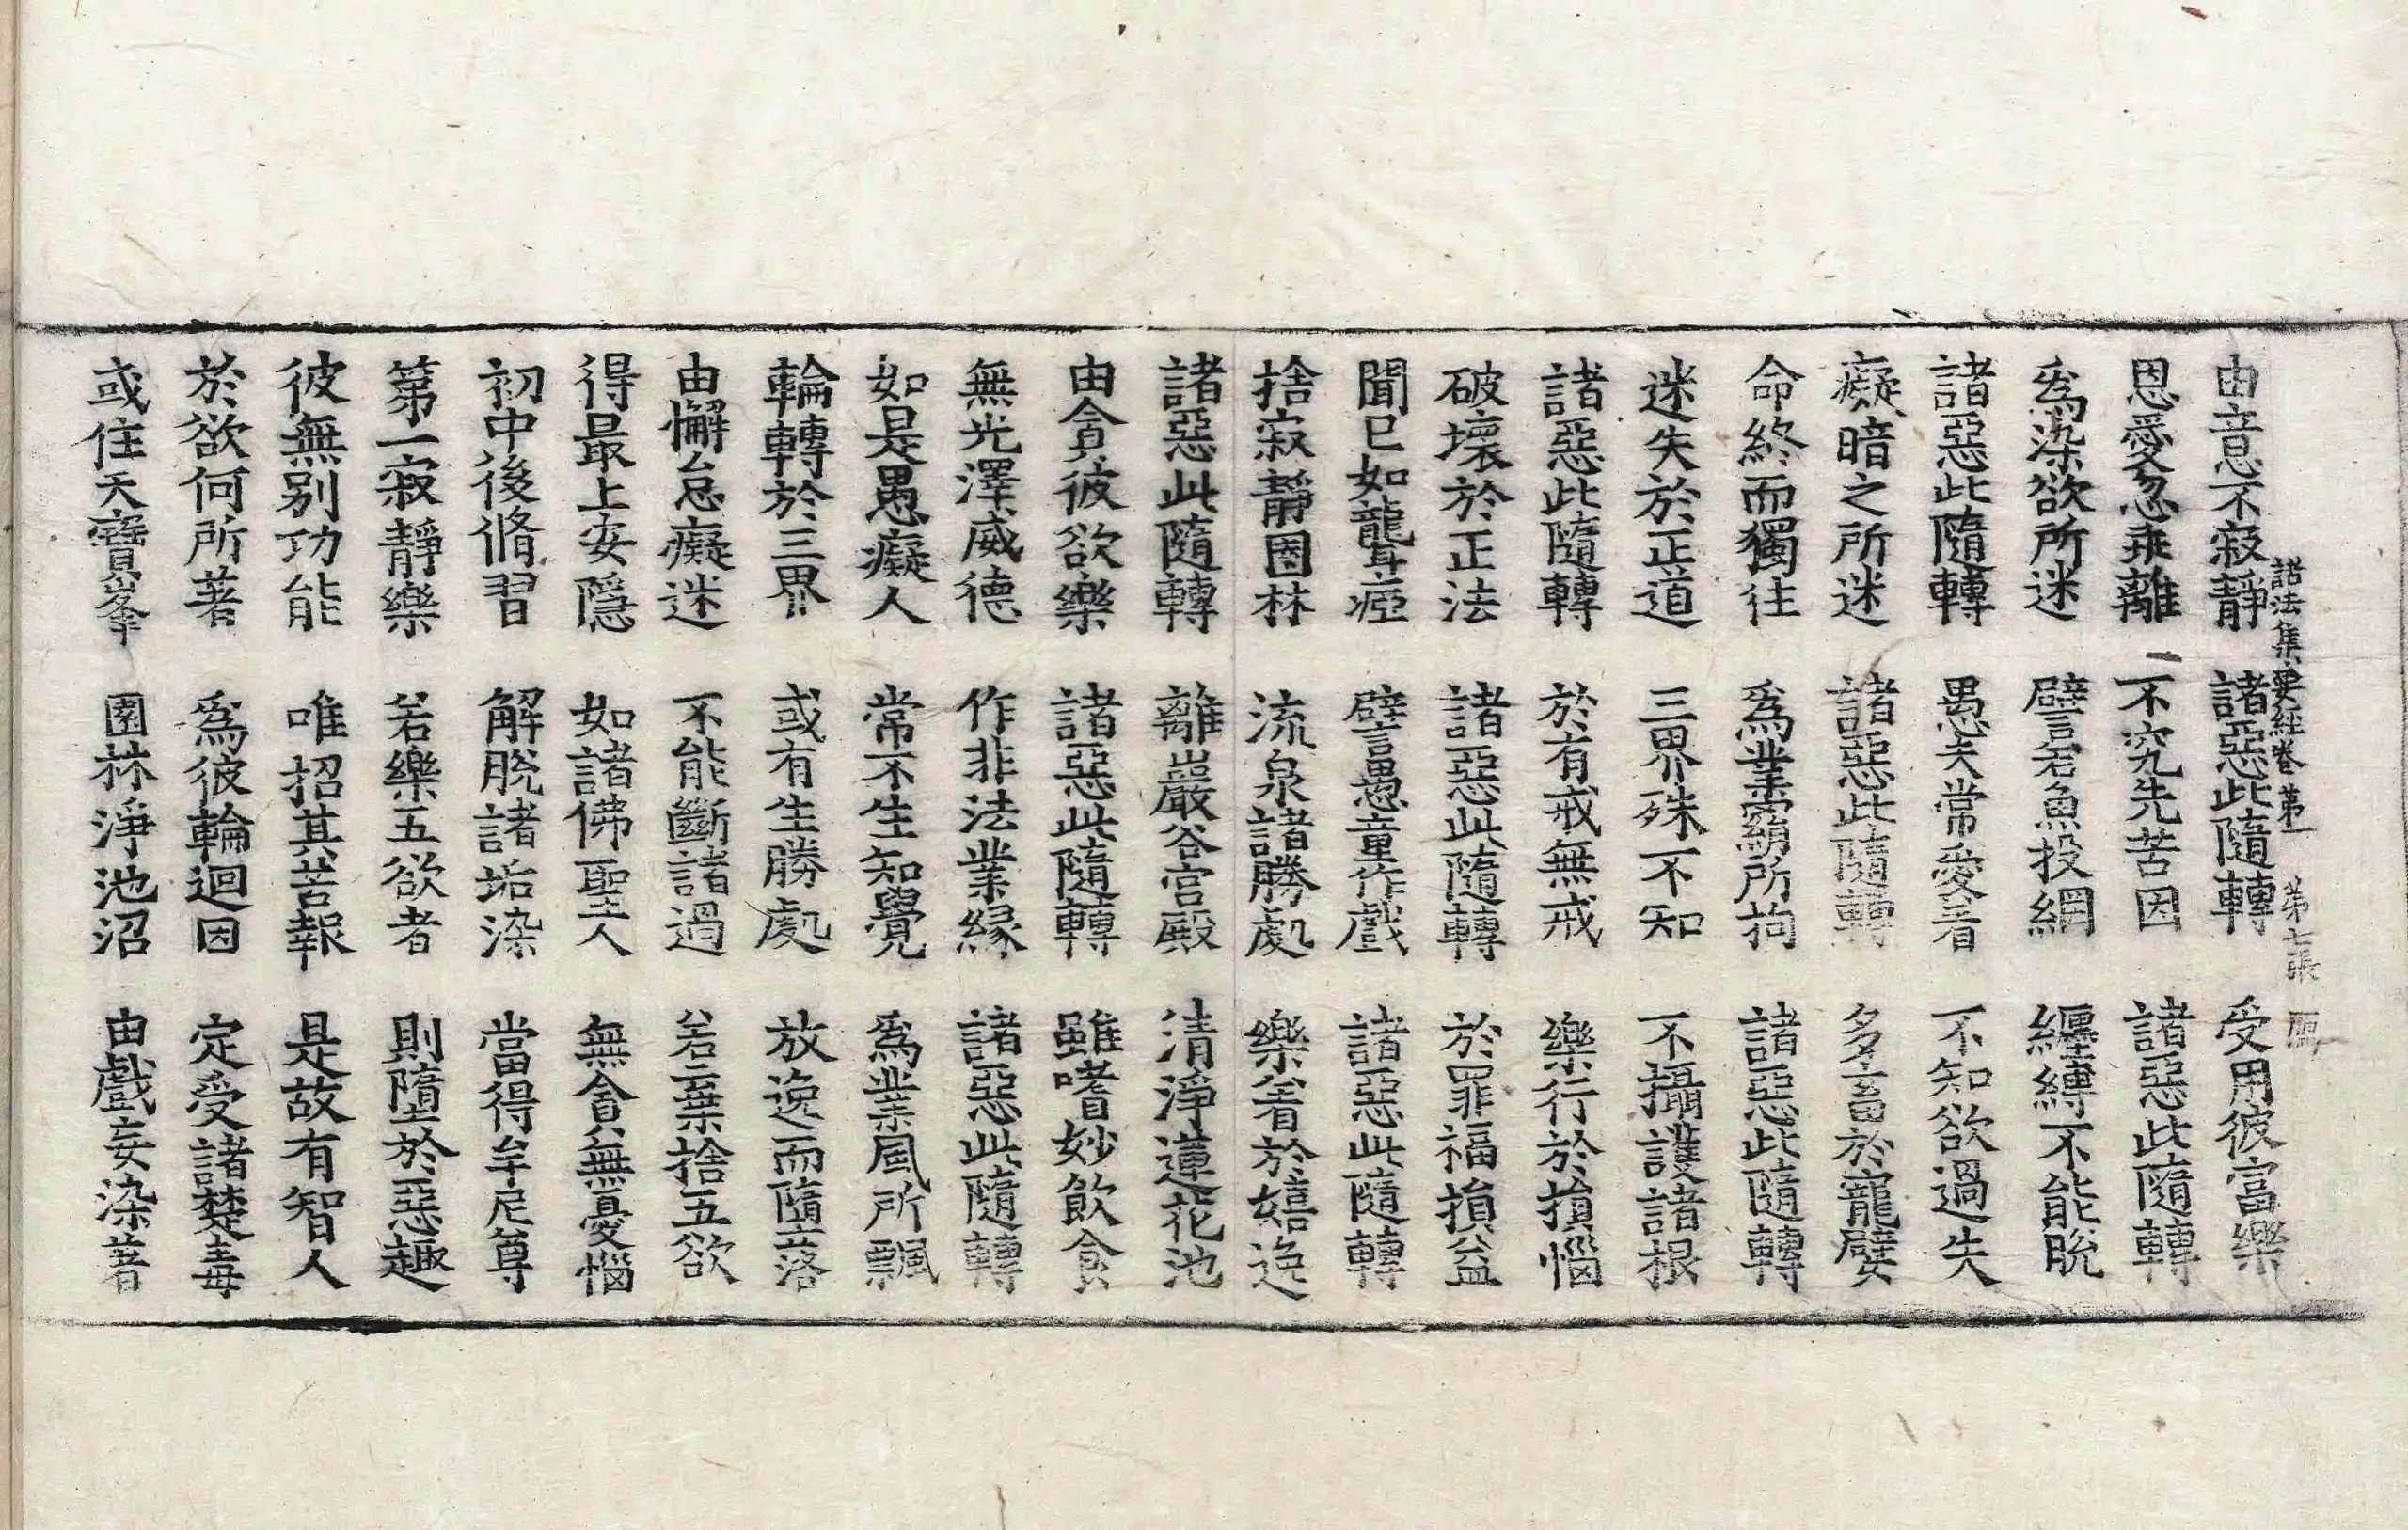 諸法集要經卷第一　第七張
由意不寂靜　諸惡此隨轉　受用彼富樂
恩愛忽乖離　不究先苦因　諸惡此隨轉
爲染欲所迷　譬若魚投網　纏縛不能脫
諸惡此隨轉　愚夫常愛着　不知欲過失
癡暗之所迷　諸惡此隨轉　多畜於寵嬖
命終而獨往　爲業羂所拘　諸惡此隨轉
迷失於正道　三界殊不知　不攝護諸根
諸惡此隨轉　於有戒無戒　樂行於損惱
破壞於正法　諸惡此隨轉　於罪福損益
聞已如聾瘂　譬愚童作戲　諸惡此隨轉
捨寂靜園林　流泉諸勝處　樂着於嬉逸
諸惡此隨轉　離巖谷宮殿　清淨蓮花池
由貪彼欲樂　諸惡此隨轉　雖嗜妙飲食
無光澤威德　作非法業緣　諸惡此隨轉
如是愚癡人　常不生知覺　爲業風所飄
輪轉於三界　或有生勝處　放逸而隨落
由懈怠癡迷　不能斷諸過　若棄捨五欲
得最上安隱　如諸佛聖人　無貪無憂惱
初中後脩習　解脫諸垢染　當得牟尼尊
第一寂靜樂　若樂五欲者　則隨於惡趣
彼無別功能　唯招其苦報　是故有智人
於欲何所著　爲彼輪迴因　定受諸楚毒
或住天寶峯　園林淨池沼　由戲妄染著